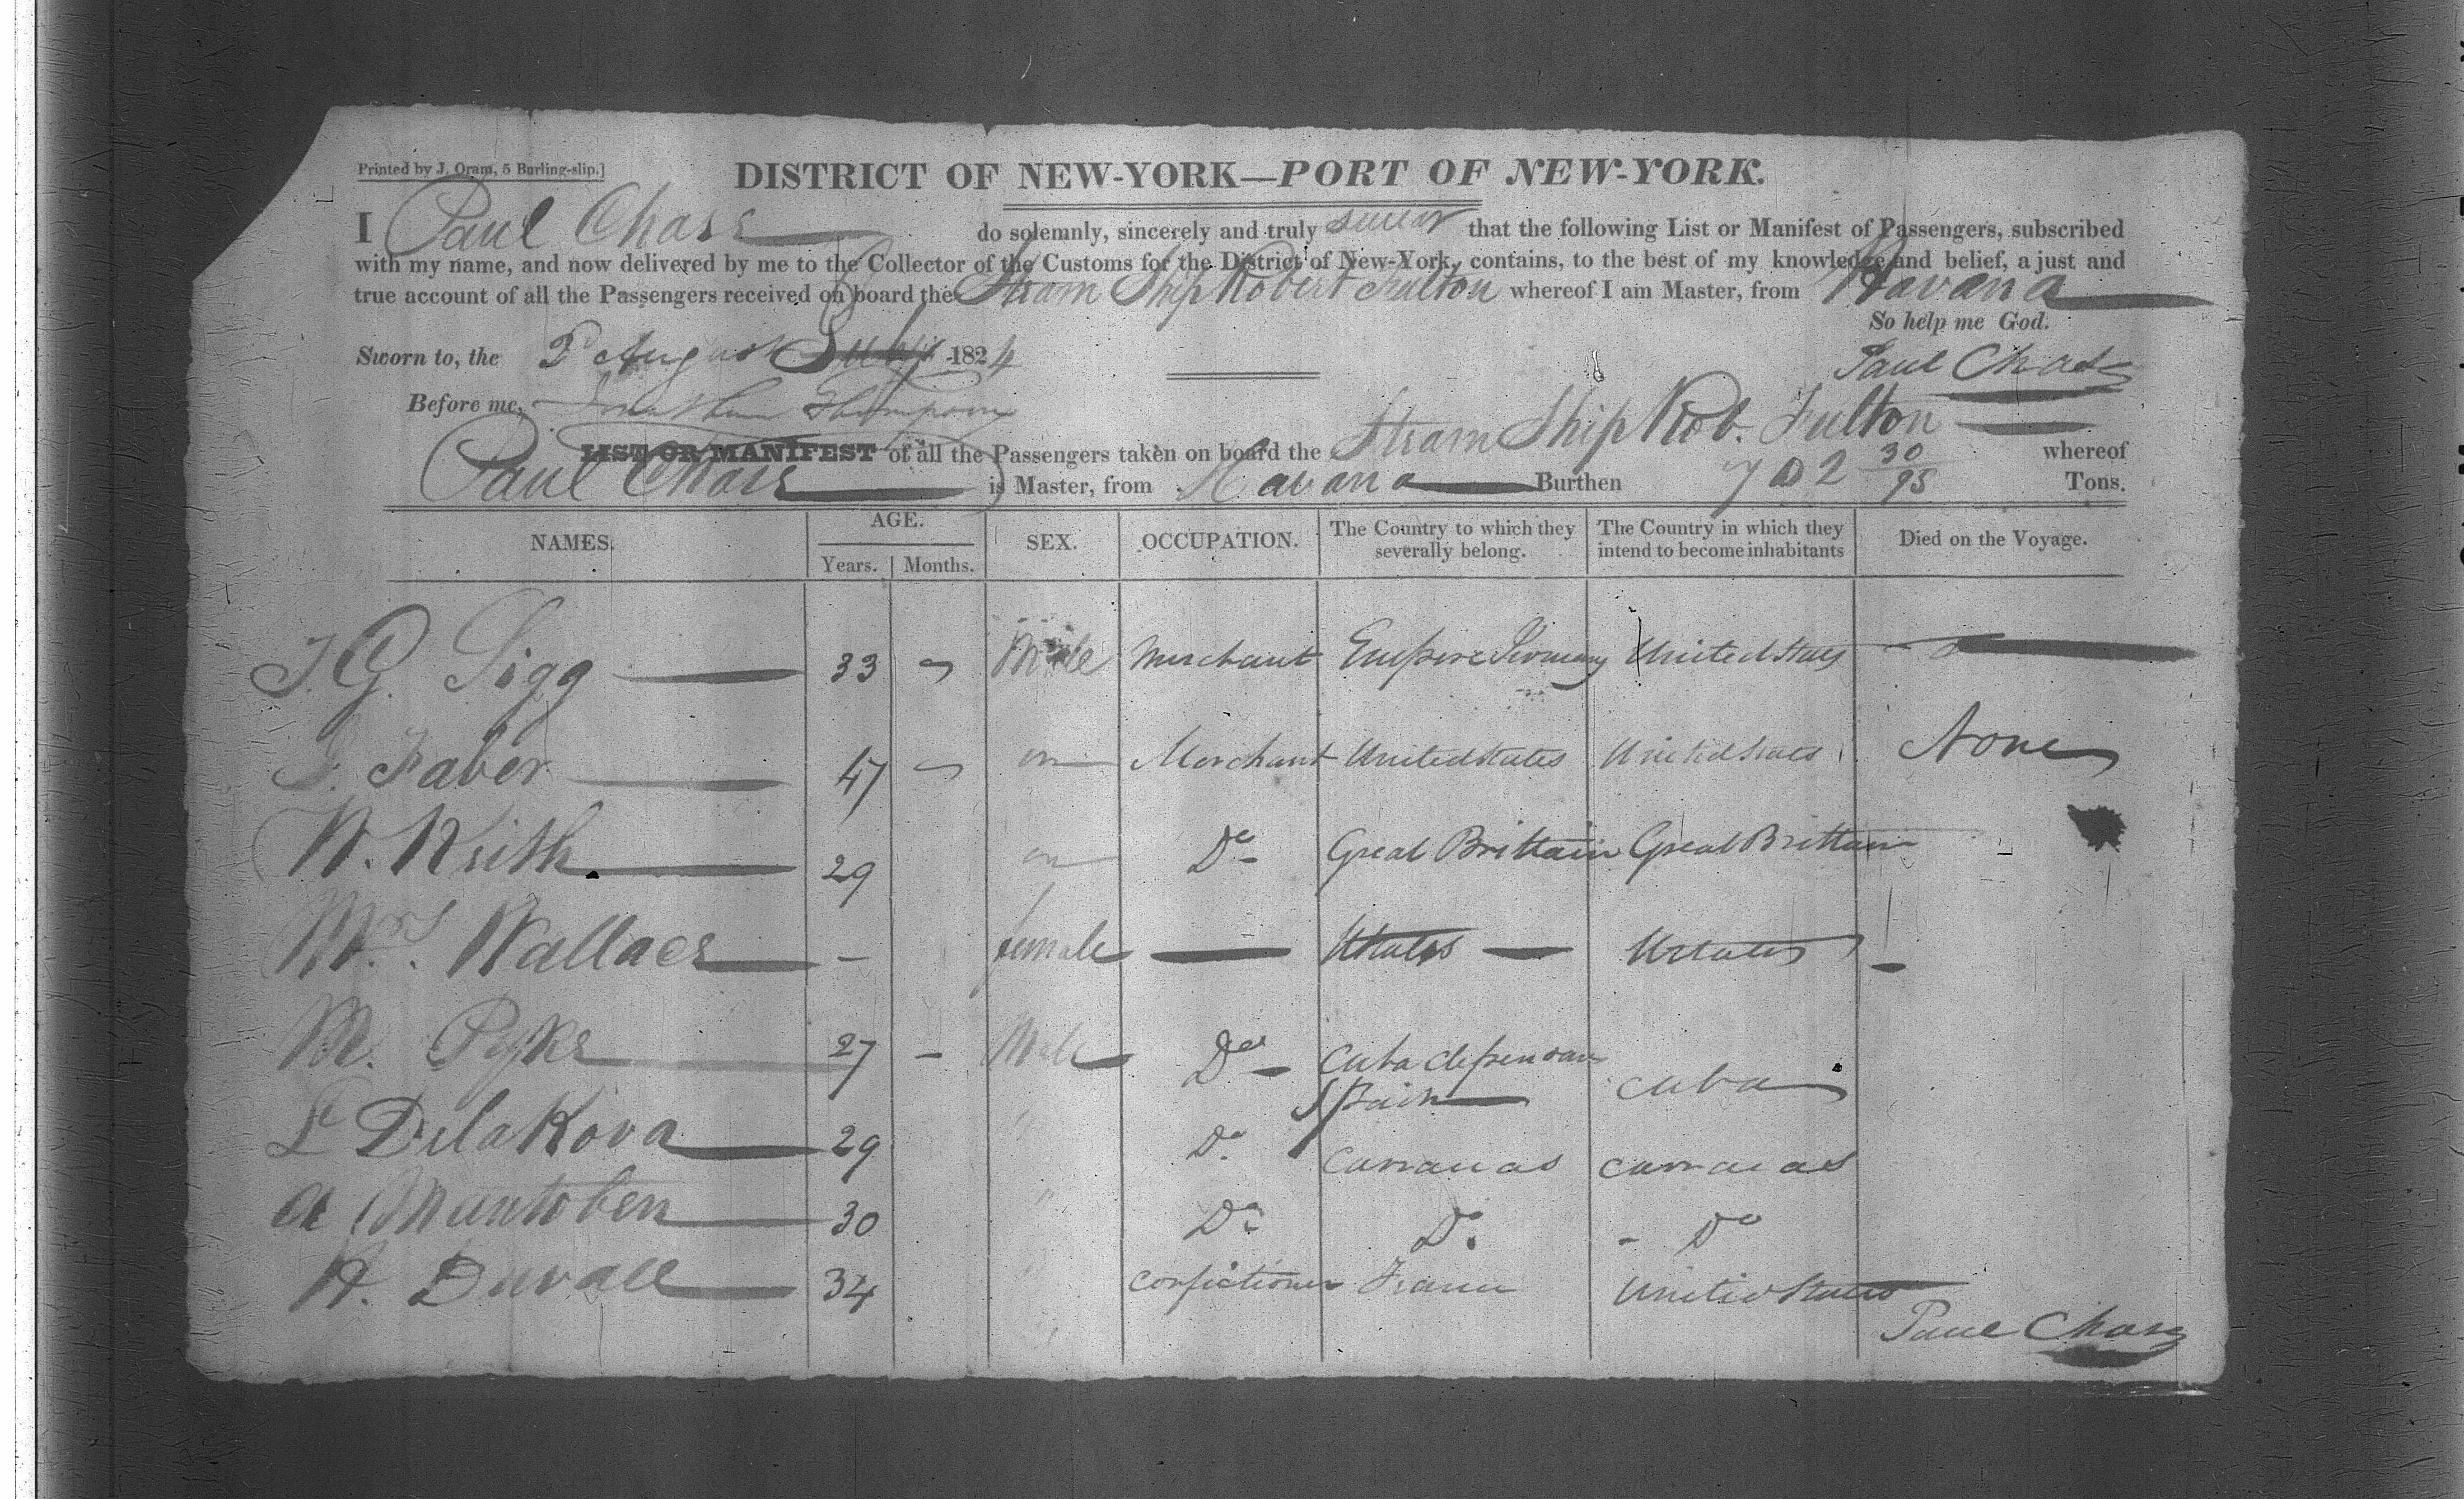 Printed by J. Oram, 5 Burling-slip.]
DISTRICT OF NEW-YORK—PORT OF NEW-YORK.
I Paul Chase do solemnly, sincerely and truly swear that the following List or Manifest of Passengers, subscribed
with my name, and now delivered by me to the Collector of the Customs for the District of New-York, contains, to the best of my knowledge and belief, a just and
true account of all the Passengers received on board the Steam Ship Robert Fulton whereof I am Master, from Havana
So help me God.
Sworn to, the 2d August July 1824
Paul Chase
Before me, Jonathan Thompson
LIST OR MANIFEST of all the Passengers taken on board the Steam Ship Rob. Fulton whereof
Paul Chase is Master, from Havana Burthen 702 30/95 Tons.
NAMES. AGE. SEX. OCCUPATION. The Country to which they severally belong. The Country in which they intend to become inhabitants Died on the Voyage.
Years. Months.
J. G. Sigg 33 Male Merchant Empire Germany United States
Faber 47 m Merchant United States United States None
W. Keith 29 m Do Great Brittain Great Brittain
Mrs. Wallace — female — UStates — UStates
M. Pyke 27 - Male Do - Cuba dependan Spain Cuba
Le DelaKova 29 " Do Carracas Carracas
A Mantoben 30 " Do Do - Do
H. Duvall 34 " Confictioner France United States
Paul Chase